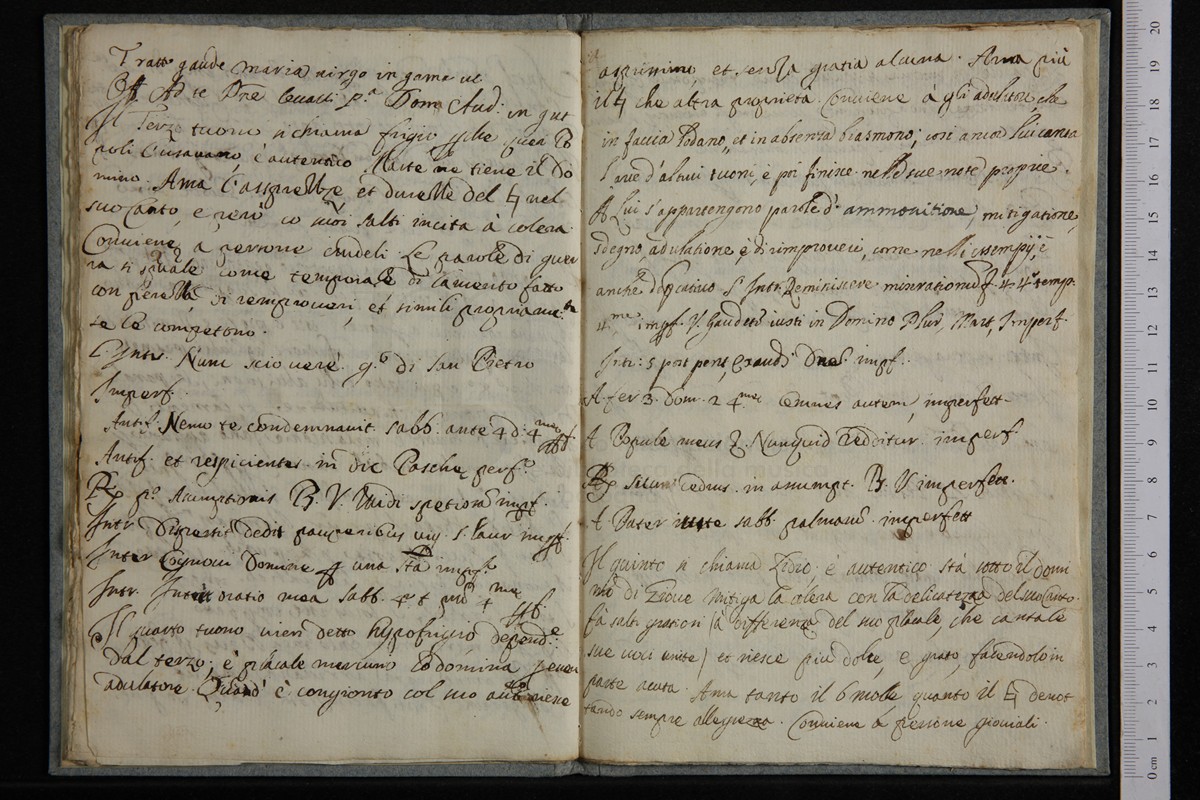 Tratto gaude maria virgo in game ut
Off. Ad te Dñe levavi pª Dom Aud: in gut
Il Terzo tuono si chiama frigio
usavano, è autentico Marte ne tiene il Do
mino. Ama l'asprezze et durezze del ♮ nel
suo Canto, e però co suoi salti incita à colera
Conviene à persone crudeli le parole di guer
ra si quale come temporale di lamento fatto
con di remproveri et simili propriamte
se le competono.
L'Intr. Nunc scio vere gº di San Pietro
Imperf.
Antif. Nemo te condemnavit. Sabb. ante 4 d: 4me
Antif. et respicientes in die Paschę perf.
R. pº Asumptionis B. V. Vidi spetiosā impf.
Intr Dispersit dedit pauperibus vig. S. Laur impf.
Inter Cognovi Domine
Intr. Intret oratio mea Sabb. 4me
Il quarto tuono vien detto hypofrigio depende
dal terzo; è placale mercurio lo domina
adulatore. Quand' è congionto col suo autº viene
asprissimo et senza gratia alcuna. Ama più
il ♮ che altra proprietà. Conviene à gli adulatori, che
in faccia lodano, et in absenza biasmono; così ancor lui canta
l'arie d'altrui tuoni, e poi finisce nelle sue note proprie.
A lui s'appartengono parole d'ammonitione, mitigatione,
sdegno, adulatione, e di improveri, come nelli essempij; è
anche Intr. Reminiscere miserationũ 4 temp.
4me impf. V. Gaudete iusti in Domino Plur. Mart. Imperf.
Intr: 5 post pent. Exaudi Dñe impf.
A fer 3. Dom. 2 4me Omnes autem, imperfett.
A Popule meus Nunquid redditur imperf
R. sicut cedrus in assumpt. B. V imperfett.
A Pater iuste sabb. palmarũ imperfett
Il quinto si chiama Lidio, e autentico stà sotto il domi
nio di Giove mitiga la colera con la delicatezza del suo Canto.
fà salti gratiosi (à differenza del suo placale, che cantale
sue voci unite) et riesce più dolce, e grato, facendolo in
parte acuta. Ama tanto il b molle quanto il ♮ denot
tando sempre allegrezza. Conviene à persone gioviali.